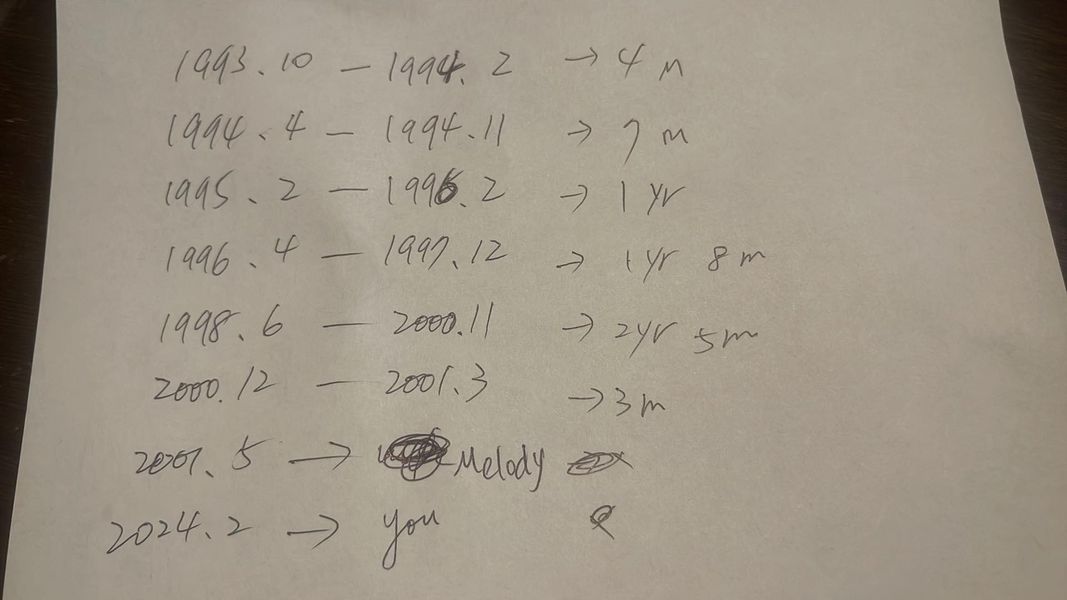 1993.10 — 1994.2 → 4 m
1994.4 — 1994.11 → 7 m
1995.2 — 1996.2 → 1 yr
1996.4 — 1997.12 → 1 yr 8 m
1998.6 — 2000.11 → 2yr 5m
2000.12 — 2001.3 → 3 m
2001.5 → Melody
2024.2 → you